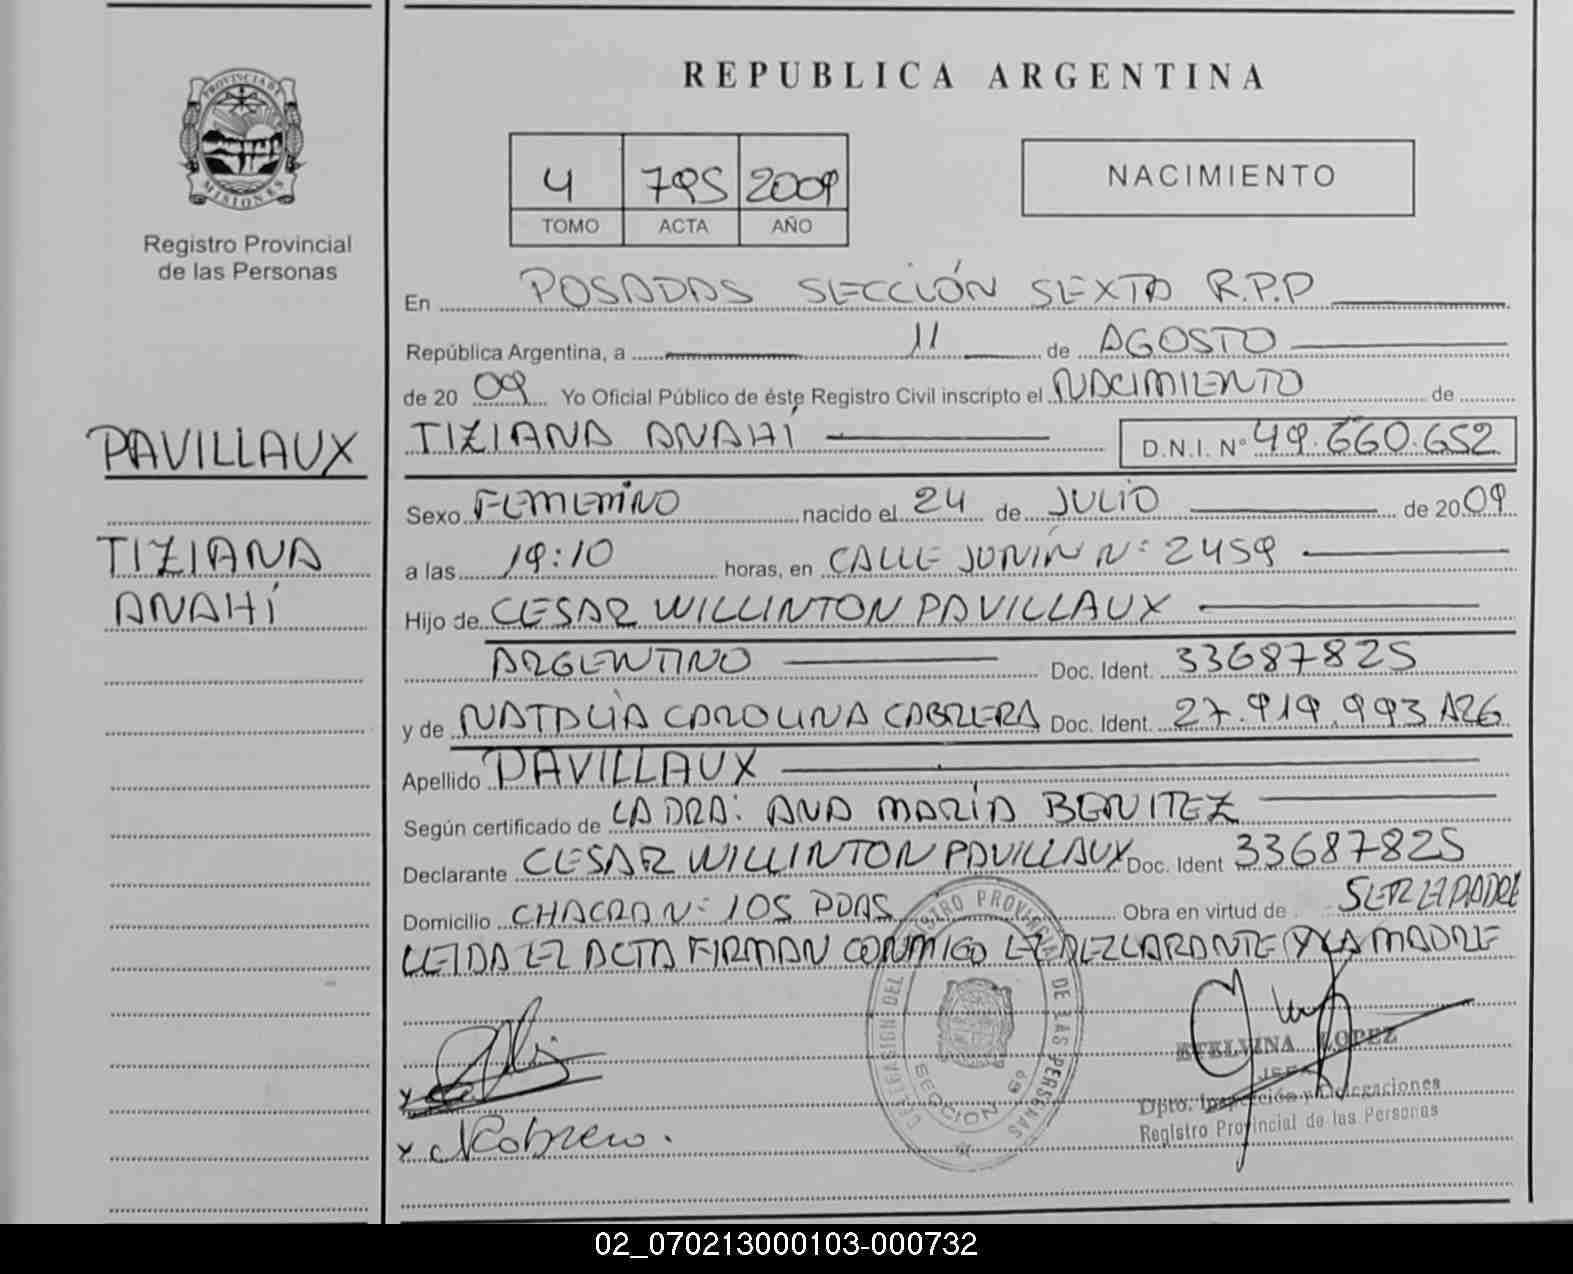 PROVINCIA DE
MISIONES
Registro Provincial
de las Personas
PAVILLAUX
TIZIANA
ANAHÍ
REPUBLICA ARGENTINA
4 795 2009
TOMO ACTA AÑO
NACIMIENTO
En POSADAS SECCIÓN SEXTA R.P.P
República Argentina, a 11 de AGOSTO
de 2009 Yo Oficial Público de éste Registro Civil inscripto el NACIMIENTO de
TIZIANA ANAHÍ D.N.I. Nº 49.660.652
Sexo FEMENINO nacido el 24 de JULIO de 2009
a las 19:10 horas, en CALLE JUNÍN Nº 2459
Hijo de CESAR WILLINTON PAVILLAUX
ARGENTINO Doc. Ident. 33687825
y de NATALIA CAROLINA CABRERA Doc. Ident. 27.919.993 ARG
Apellido PAVILLAUX
Según certificado de LA DRA: ANA MARÍA BENITEZ
Declarante CESAR WILLINTON PAVILLAUX Doc. Ident 33687825
Domicilio CHACRA Nº 105 PDAS Obra en virtud de SER EL PADRE
LEIDA EL ACTA FIRMAN CONMIGO EL DECLARANTE Y LA MADRE
DELEGACION DEL REGISTRO PROVINCIAL DE LAS PERSONAS
SECCION 6º
ETELVINA LOPEZ
JEFA
Dpto. Inspección y Delegaciones
Registro Provincial de las Personas
x
x NCabrera.
02_070213000103-000732